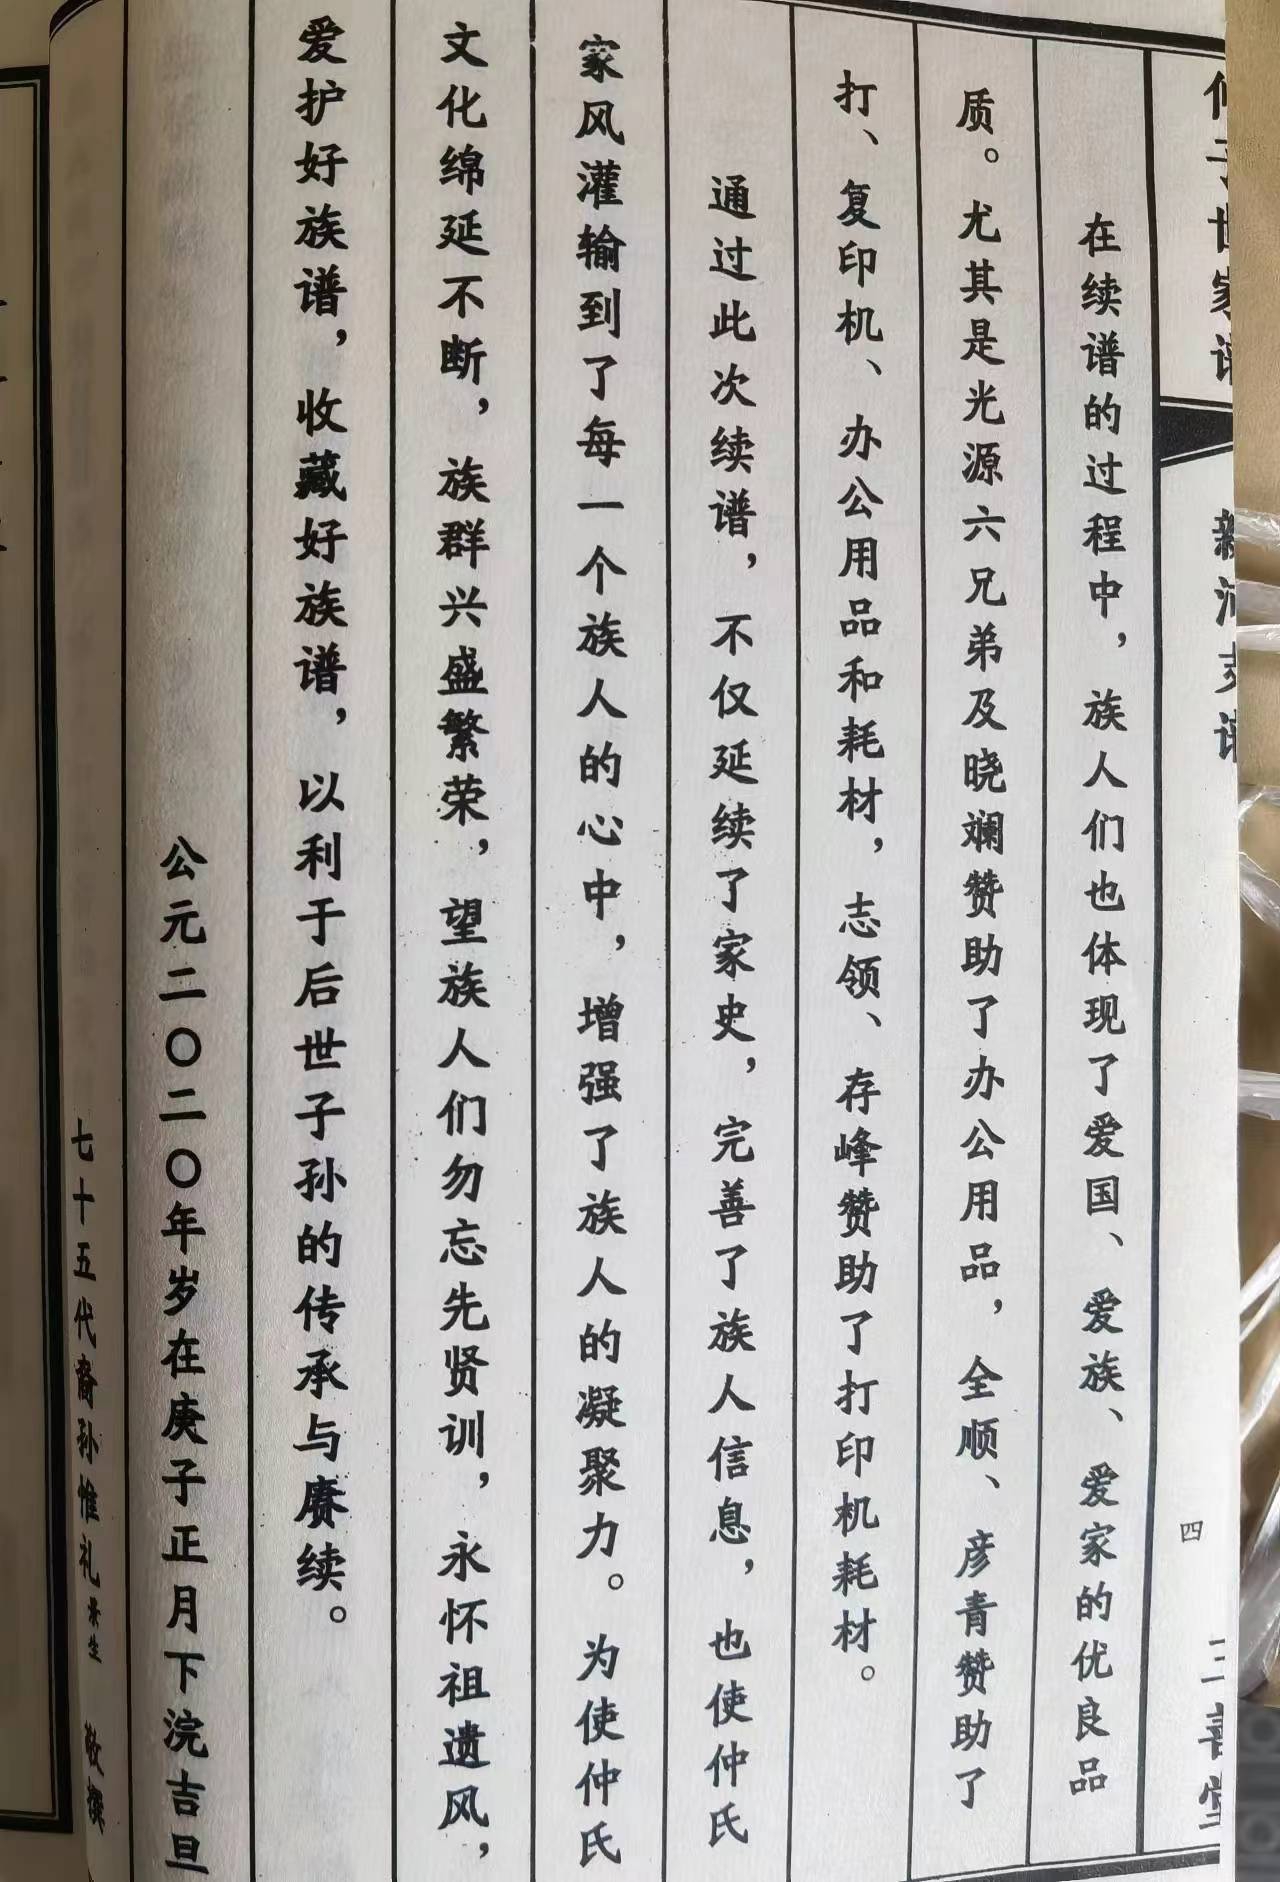 仲子世家谱 新河支谱 四 三善堂
在续谱的过程中，族人们也体现了爱国、爱族、爱家的优良品
质。尤其是光源六兄弟及晓斓赞助了办公用品，全顺、彦青赞助了
打、复印机、办公用品和耗材，志领、存峰赞助了打印机耗材。
通过此次续谱，不仅延续了家史，完善了族人信息，也使仲氏
家风灌输到了每一个族人的心中，增强了族人的凝聚力。为使仲氏
文化绵延不断，族群兴盛繁荣，望族人们勿忘先贤训，永怀祖遗风，
爱护好族谱，收藏好族谱，以利于后世子孙的传承与赓续。
公元二〇二〇年岁在庚子正月下浣吉旦
七十五代裔孙惟礼 敬撰